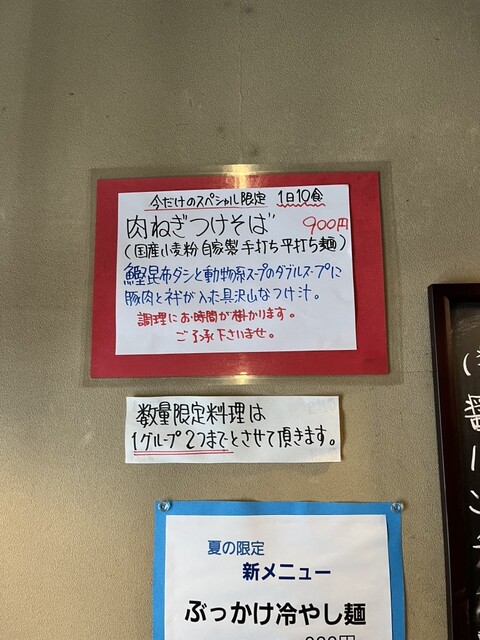 今だけのスペシャル限定 1日10食
肉ねぎつけそば 900円
(国産小麦粉自家製手打ち平打ち麺)
鰹昆布ダシと動物系スープのダブルスープに
豚肉とネギが入った具沢山なつけ汁。
調理にお時間が掛かります。
ご了承下さいませ。
数量限定料理は
1グループ2つまでとさせて頂きます。
夏の限定
新メニュー
ぶっかけ冷やし麺